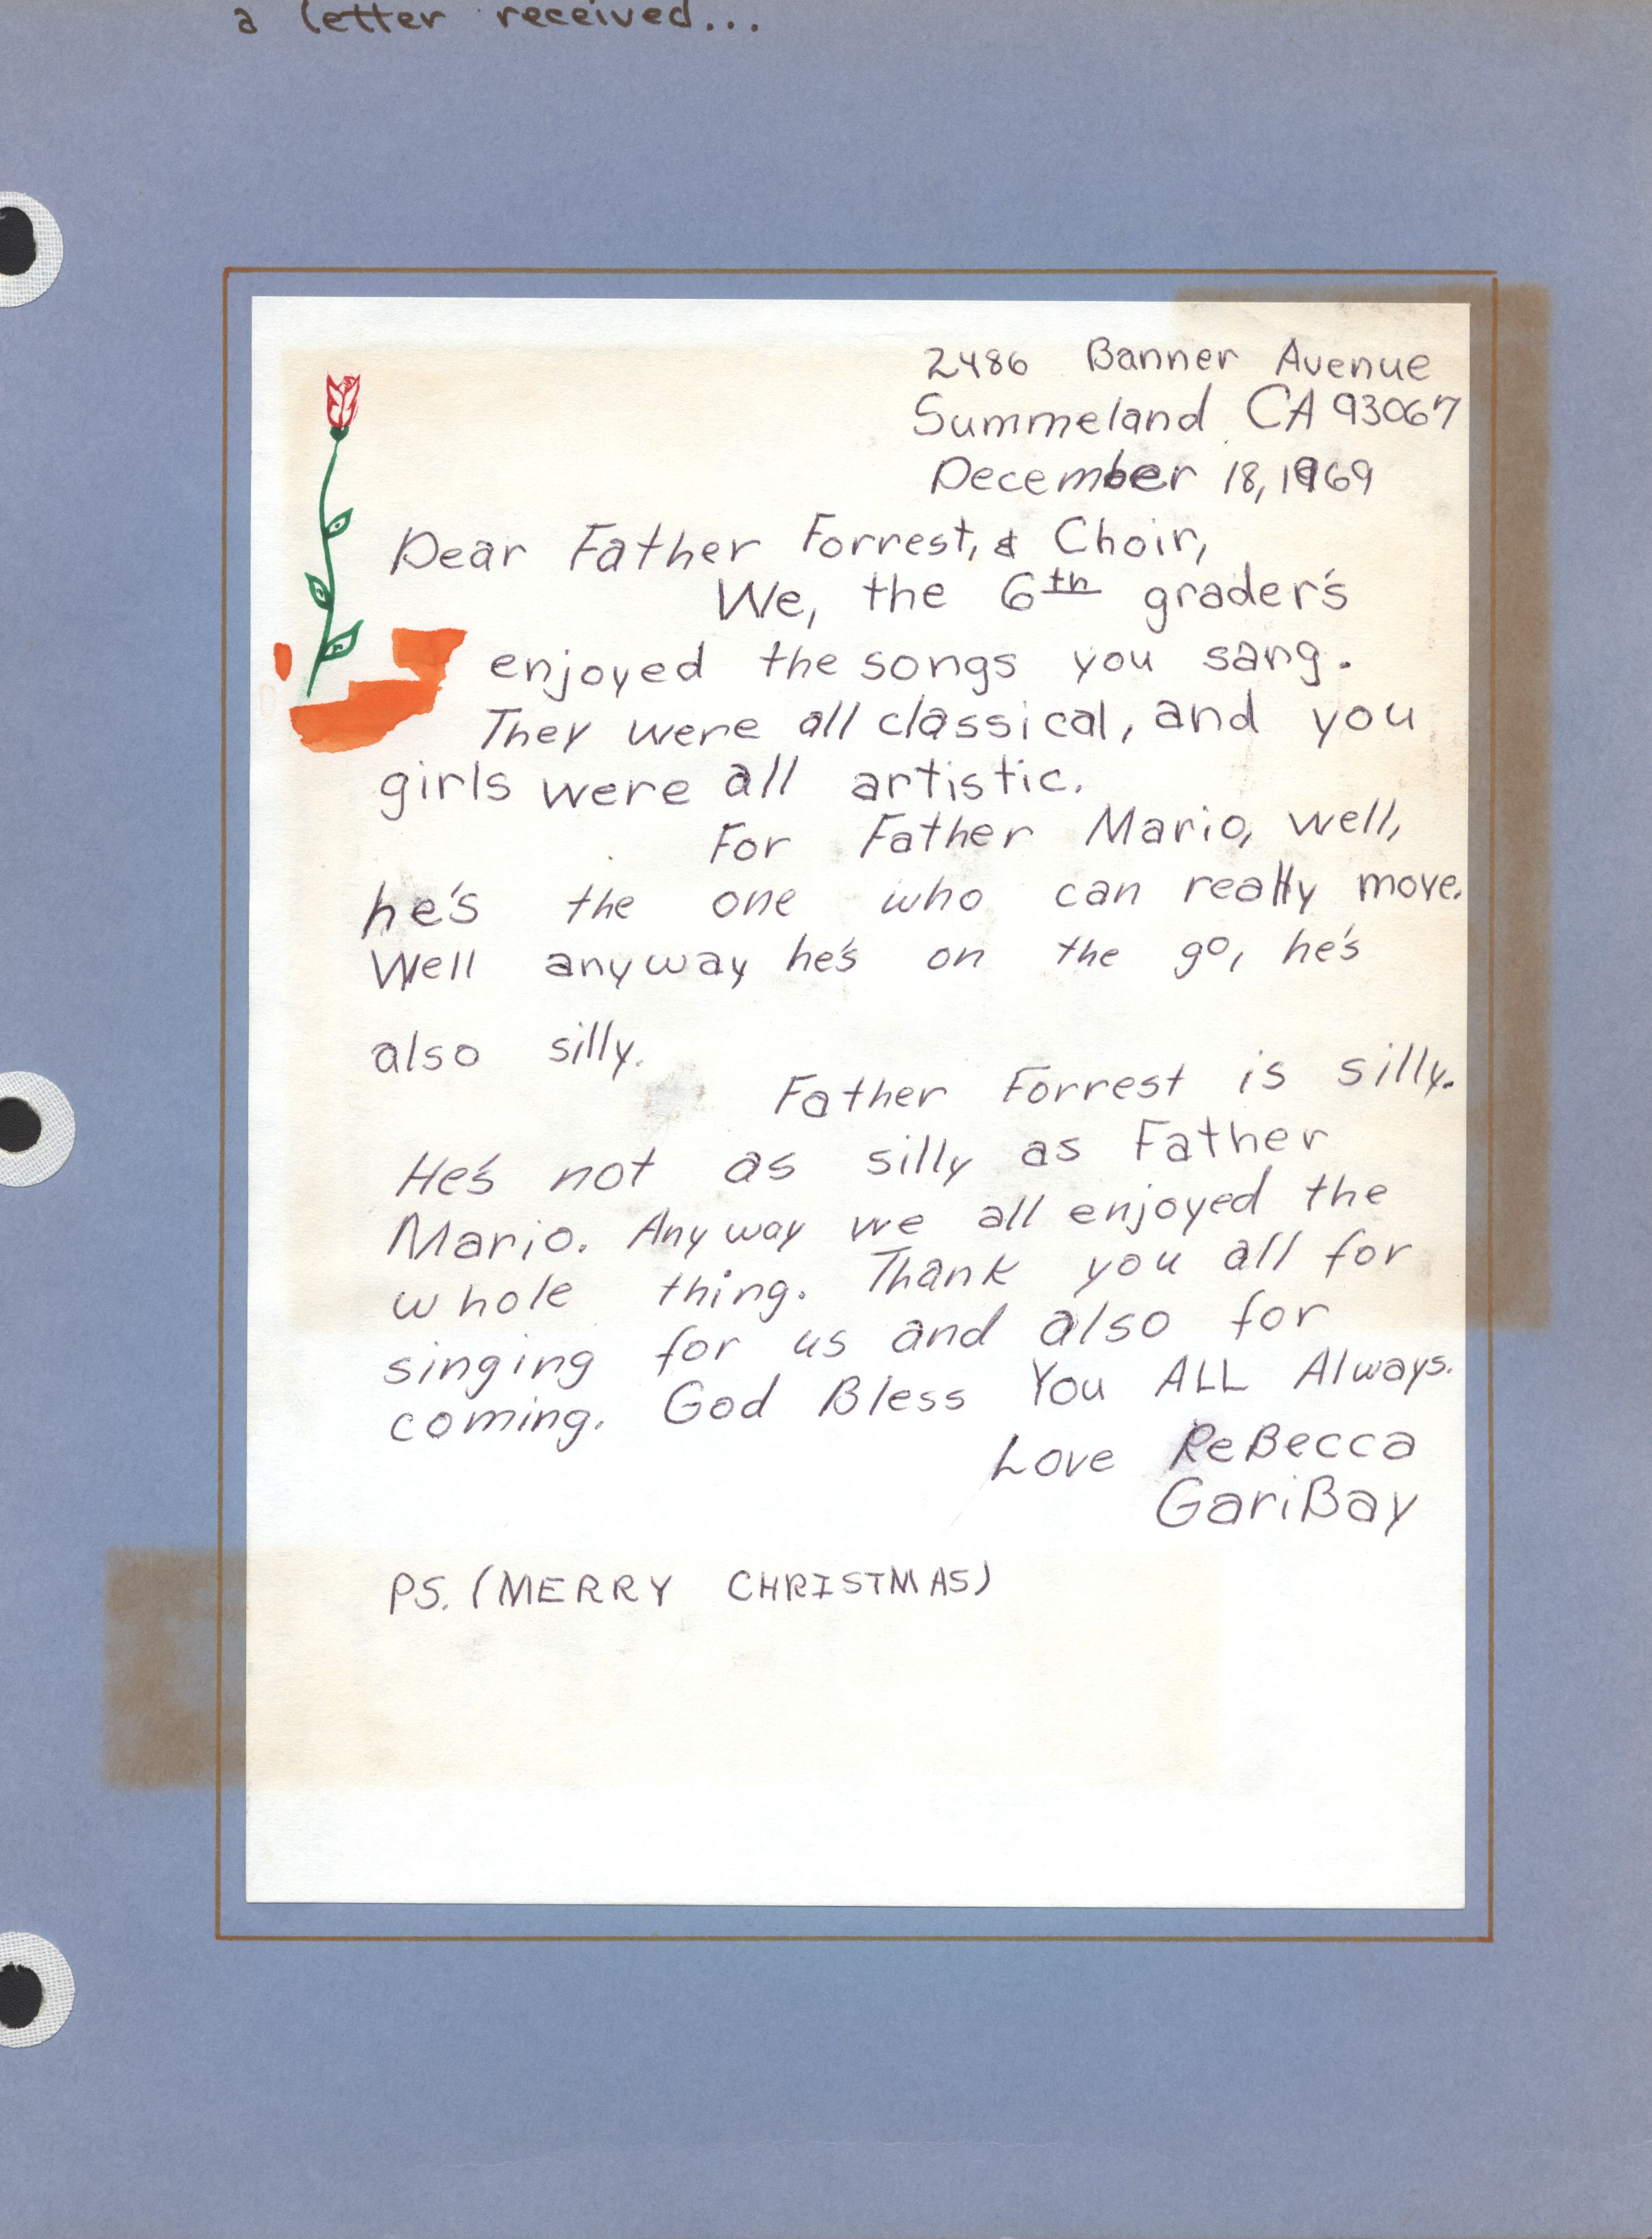 a letter received...
2486 Banner Avenue
Summeland CA 93067
December 18, 1969
Dear Father Forrest, & Choir,
We, the 6th grader's
enjoyed the songs you sang.
They were all classical, and you
girls were all artistic.
For Father Mario, well,
he's the one who can really move.
Well anyway he's on the go, he's
also silly.
Father Forrest is silly.
He's not as silly as Father
Mario. Anyway we all enjoyed the
whole thing. Thank you all for
singing for us and also for
coming. God Bless You ALL Always.
Love ReBecca
GariBay
PS. (MERRY CHRISTMAS)